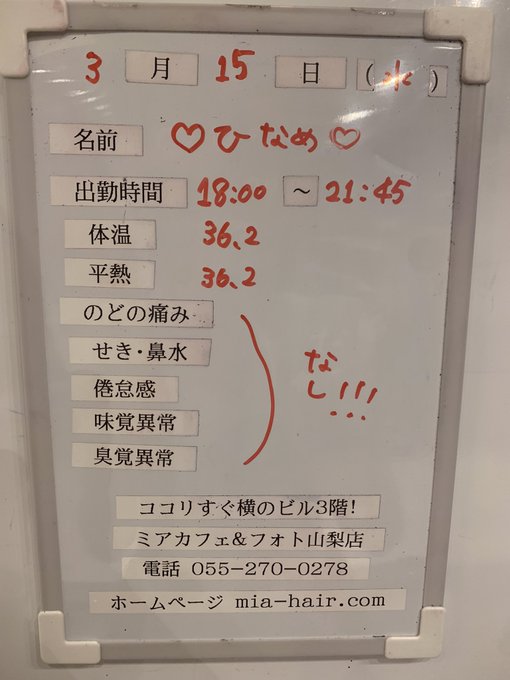 3 月 15 日 (水)
名前 ♡ひなめ♡
出勤時間 18:00 ～ 21:45
体温 36.2
平熱 36.2
のどの痛み
せき・鼻水
倦怠感
味覚異常
臭覚異常
なし!!!
ココリすぐ横のビル3階!
ミアカフェ&フォト山梨店
電話 055-270-0278
ホームページ mia-hair.com